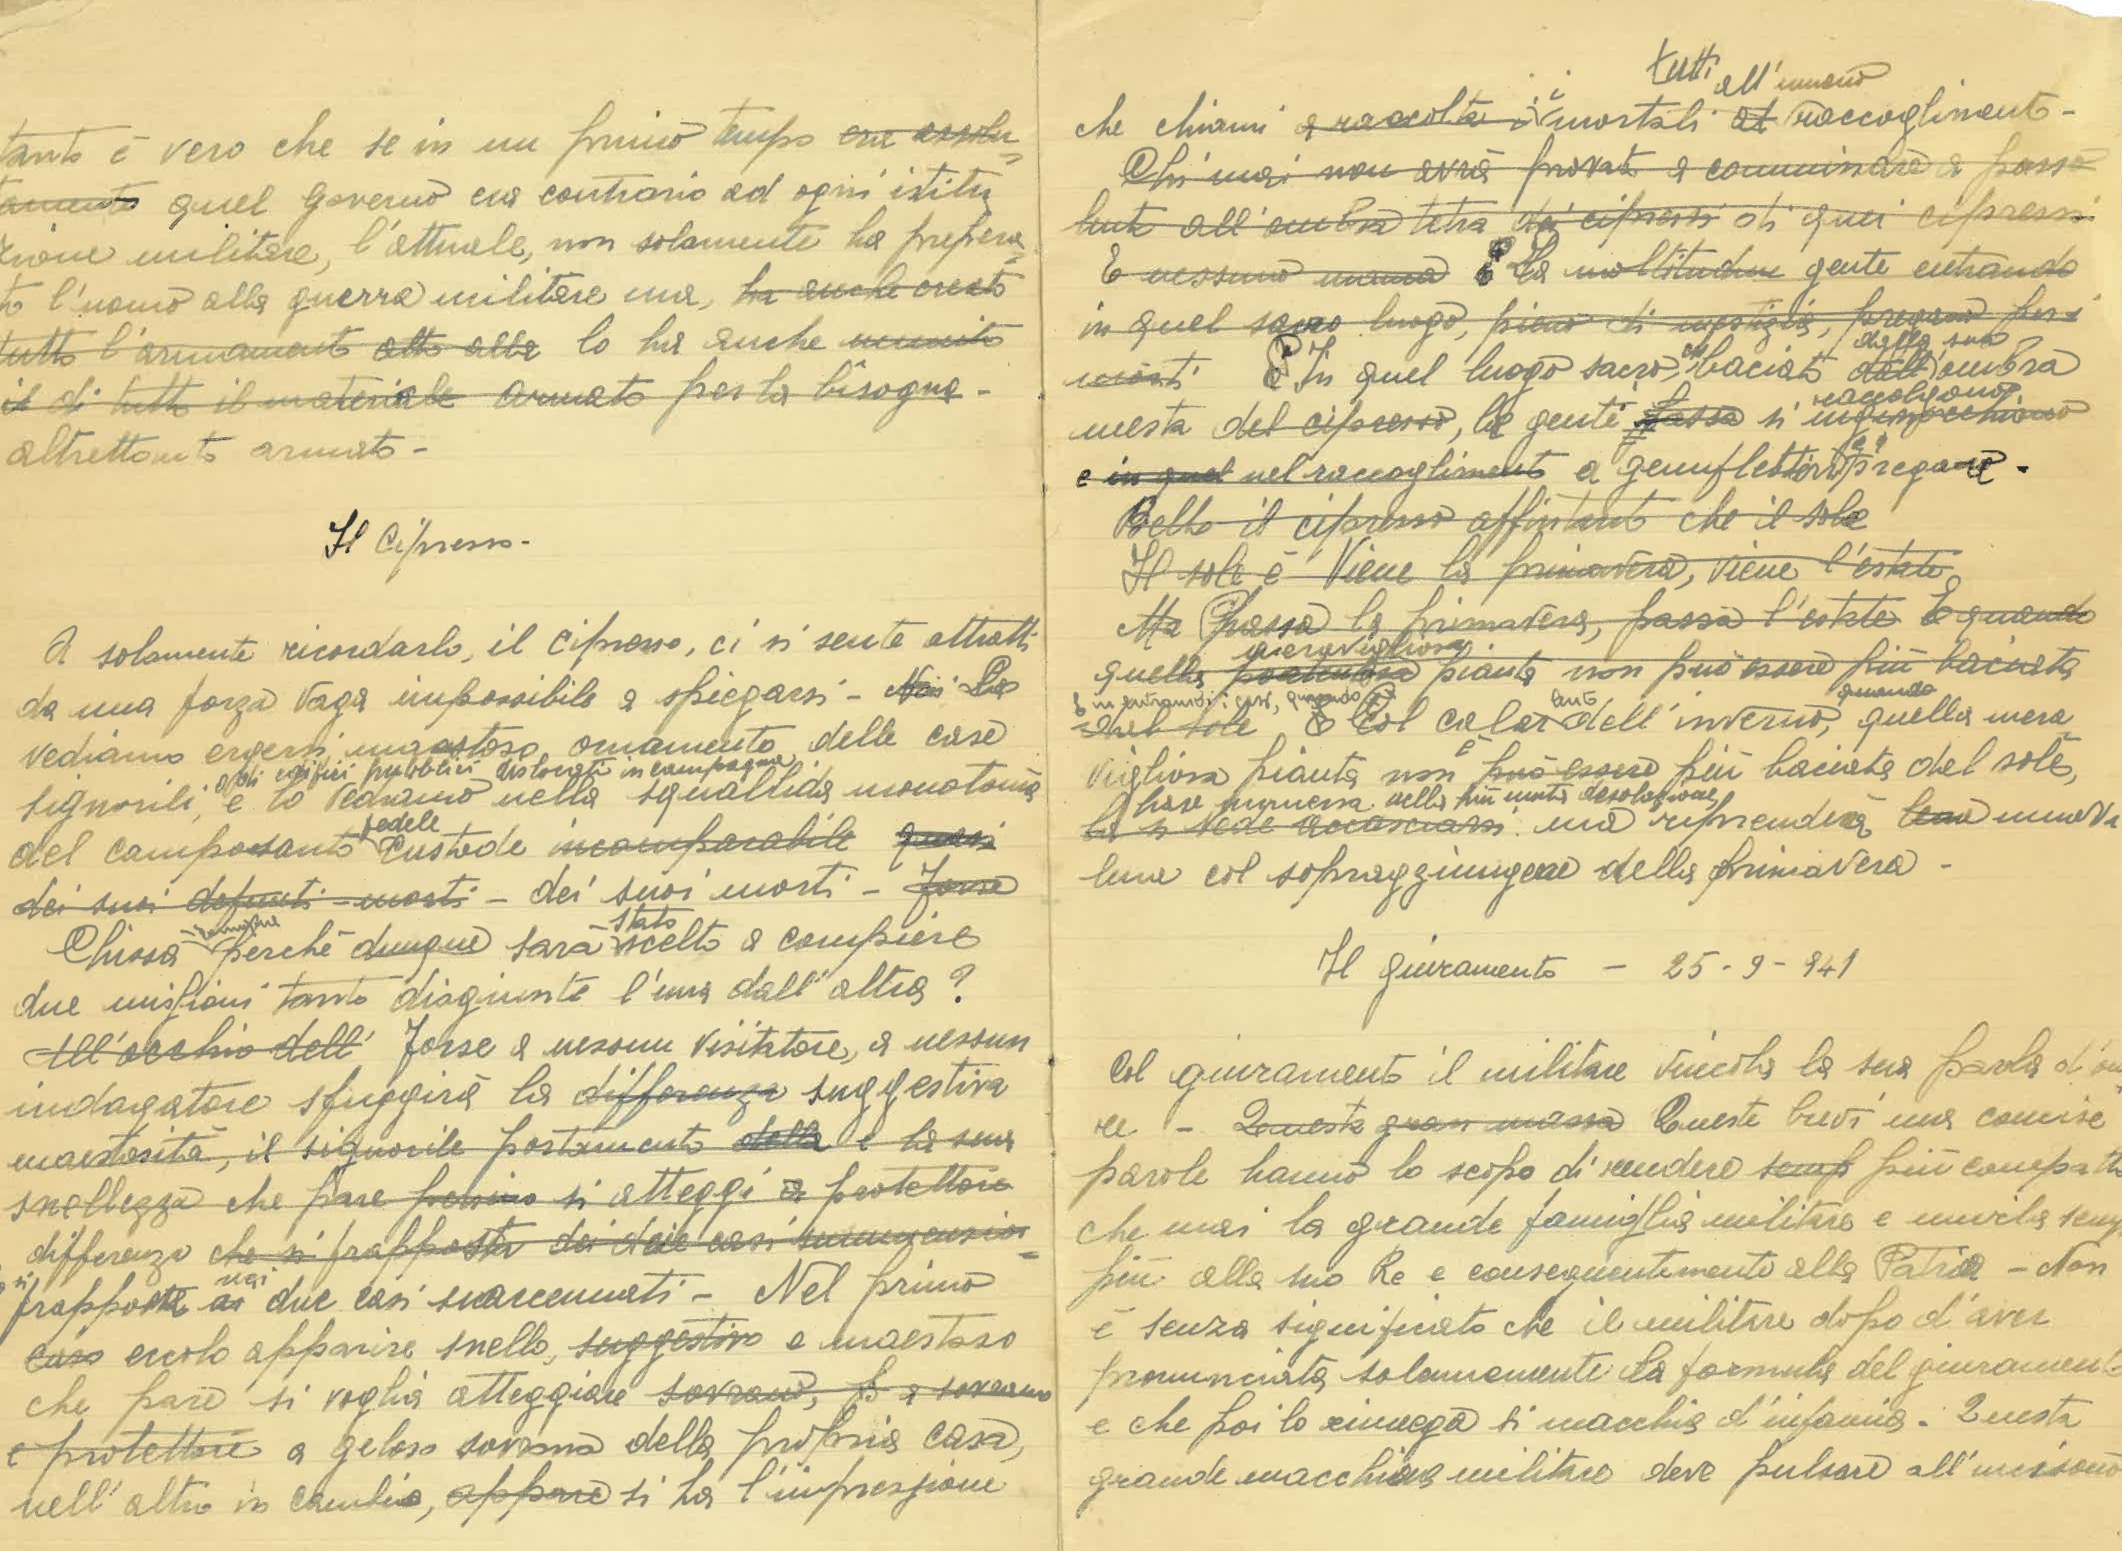 tanto è vero che se in un primo tempo era assolu=
tamente quel governo era contrario ad ogni istitu
zione militare, l'attuale, non solamente ha prepara=
to l'uomo alla guerra militare ma, ha anche creato
tutto l'armamento atto alla lo ha anche munito
il di tutto il materiale armato per la bisogna -
altrettanto armato -
Il Cipresso -
A solamente ricordarlo, il cipresso, ci si sente attratti
da una forza vaga impossibile a spiegarsi - Noi Lo
vediamo ergersi maestoso, ornamento delle case
agli edifici pubblici dislocati in campagna
signorili, e lo vediamo nella squallida monotonia
fedele
del camposanto custode incomparabile quasi
dei suoi defunti - morti - dei suoi morti - Forse
Chissà perché dunque sarà scelto a compiere
stato
due missioni tanto disgiunte l'una dall'altra?
All'occhio dell' Forse a nessun visitatore, a nessun
indagatore sfuggirà la differenza suggestiva
maestosità, il signorile portamento della e la sua
snellezza che pare persino si atteggi a protettore
differenza che si frapposta dei due casi summenzio=
si frappone ai nei due casi suaccennati - Nel primo
caso eccolo apparire snello, suggestivo e maestoso
che pare si voglia atteggiare sovrano, E a sovrano
e protettore a geloso sovrano della propria casa,
nell'altro in cambio, appare si ha l'impressione
tutti all'umano
che chiami a raccolta i mortali al raccoglimento -
Chi mai non avrà provato a camminare a passo
lento all'ombra tetra dei cipressi di quei cipressi
E nessuno La moltitudine gente entrando
in quel sacro luogo, pieno di mestizia, pregano per i
morti E In quel luogo sacro, baciato dall'ombra
dalla sua
mesta del cipresso, la gente passa si inginocchiano
raccolgono
e in quel nel raccoglimento a genuflettersi pregare.
Bello il cipresso affintanto che il sole
Il sole è Viene la primavera, viene l'estate
Ma Passa la primavera, passa l'estate E quando
meravigliosa
quella portentosa pianta non può essere più baciata
E in entrambi i casi, quando
dal sole E Col calar dell'inverno, quella mera
lento quando
vigliosa pianta non è può essere più baciata del sole,
pare immersa nella più muta desolazione,
la si vede accasciarsi ma riprenderà nuova
lena col sopraggiungere della primavera -
Il giuramento - 25-9-941
Col giuramento il militare vincola la sua parola d'ono
re - Questa gran massa Queste brevi ma concise
parole hanno lo scopo di rendere semp più compatta
che mai la grande famiglia militare e unirla sempre
più alla suo Re e conseguentemente alla Patria - Non
è senza significato che il militare dopo d'aver
pronunciata solennemente la formula del giuramento
e che poi lo rinnega si macchia d'infamia - Questa
grande macchina militare deve pulsare all'unisono